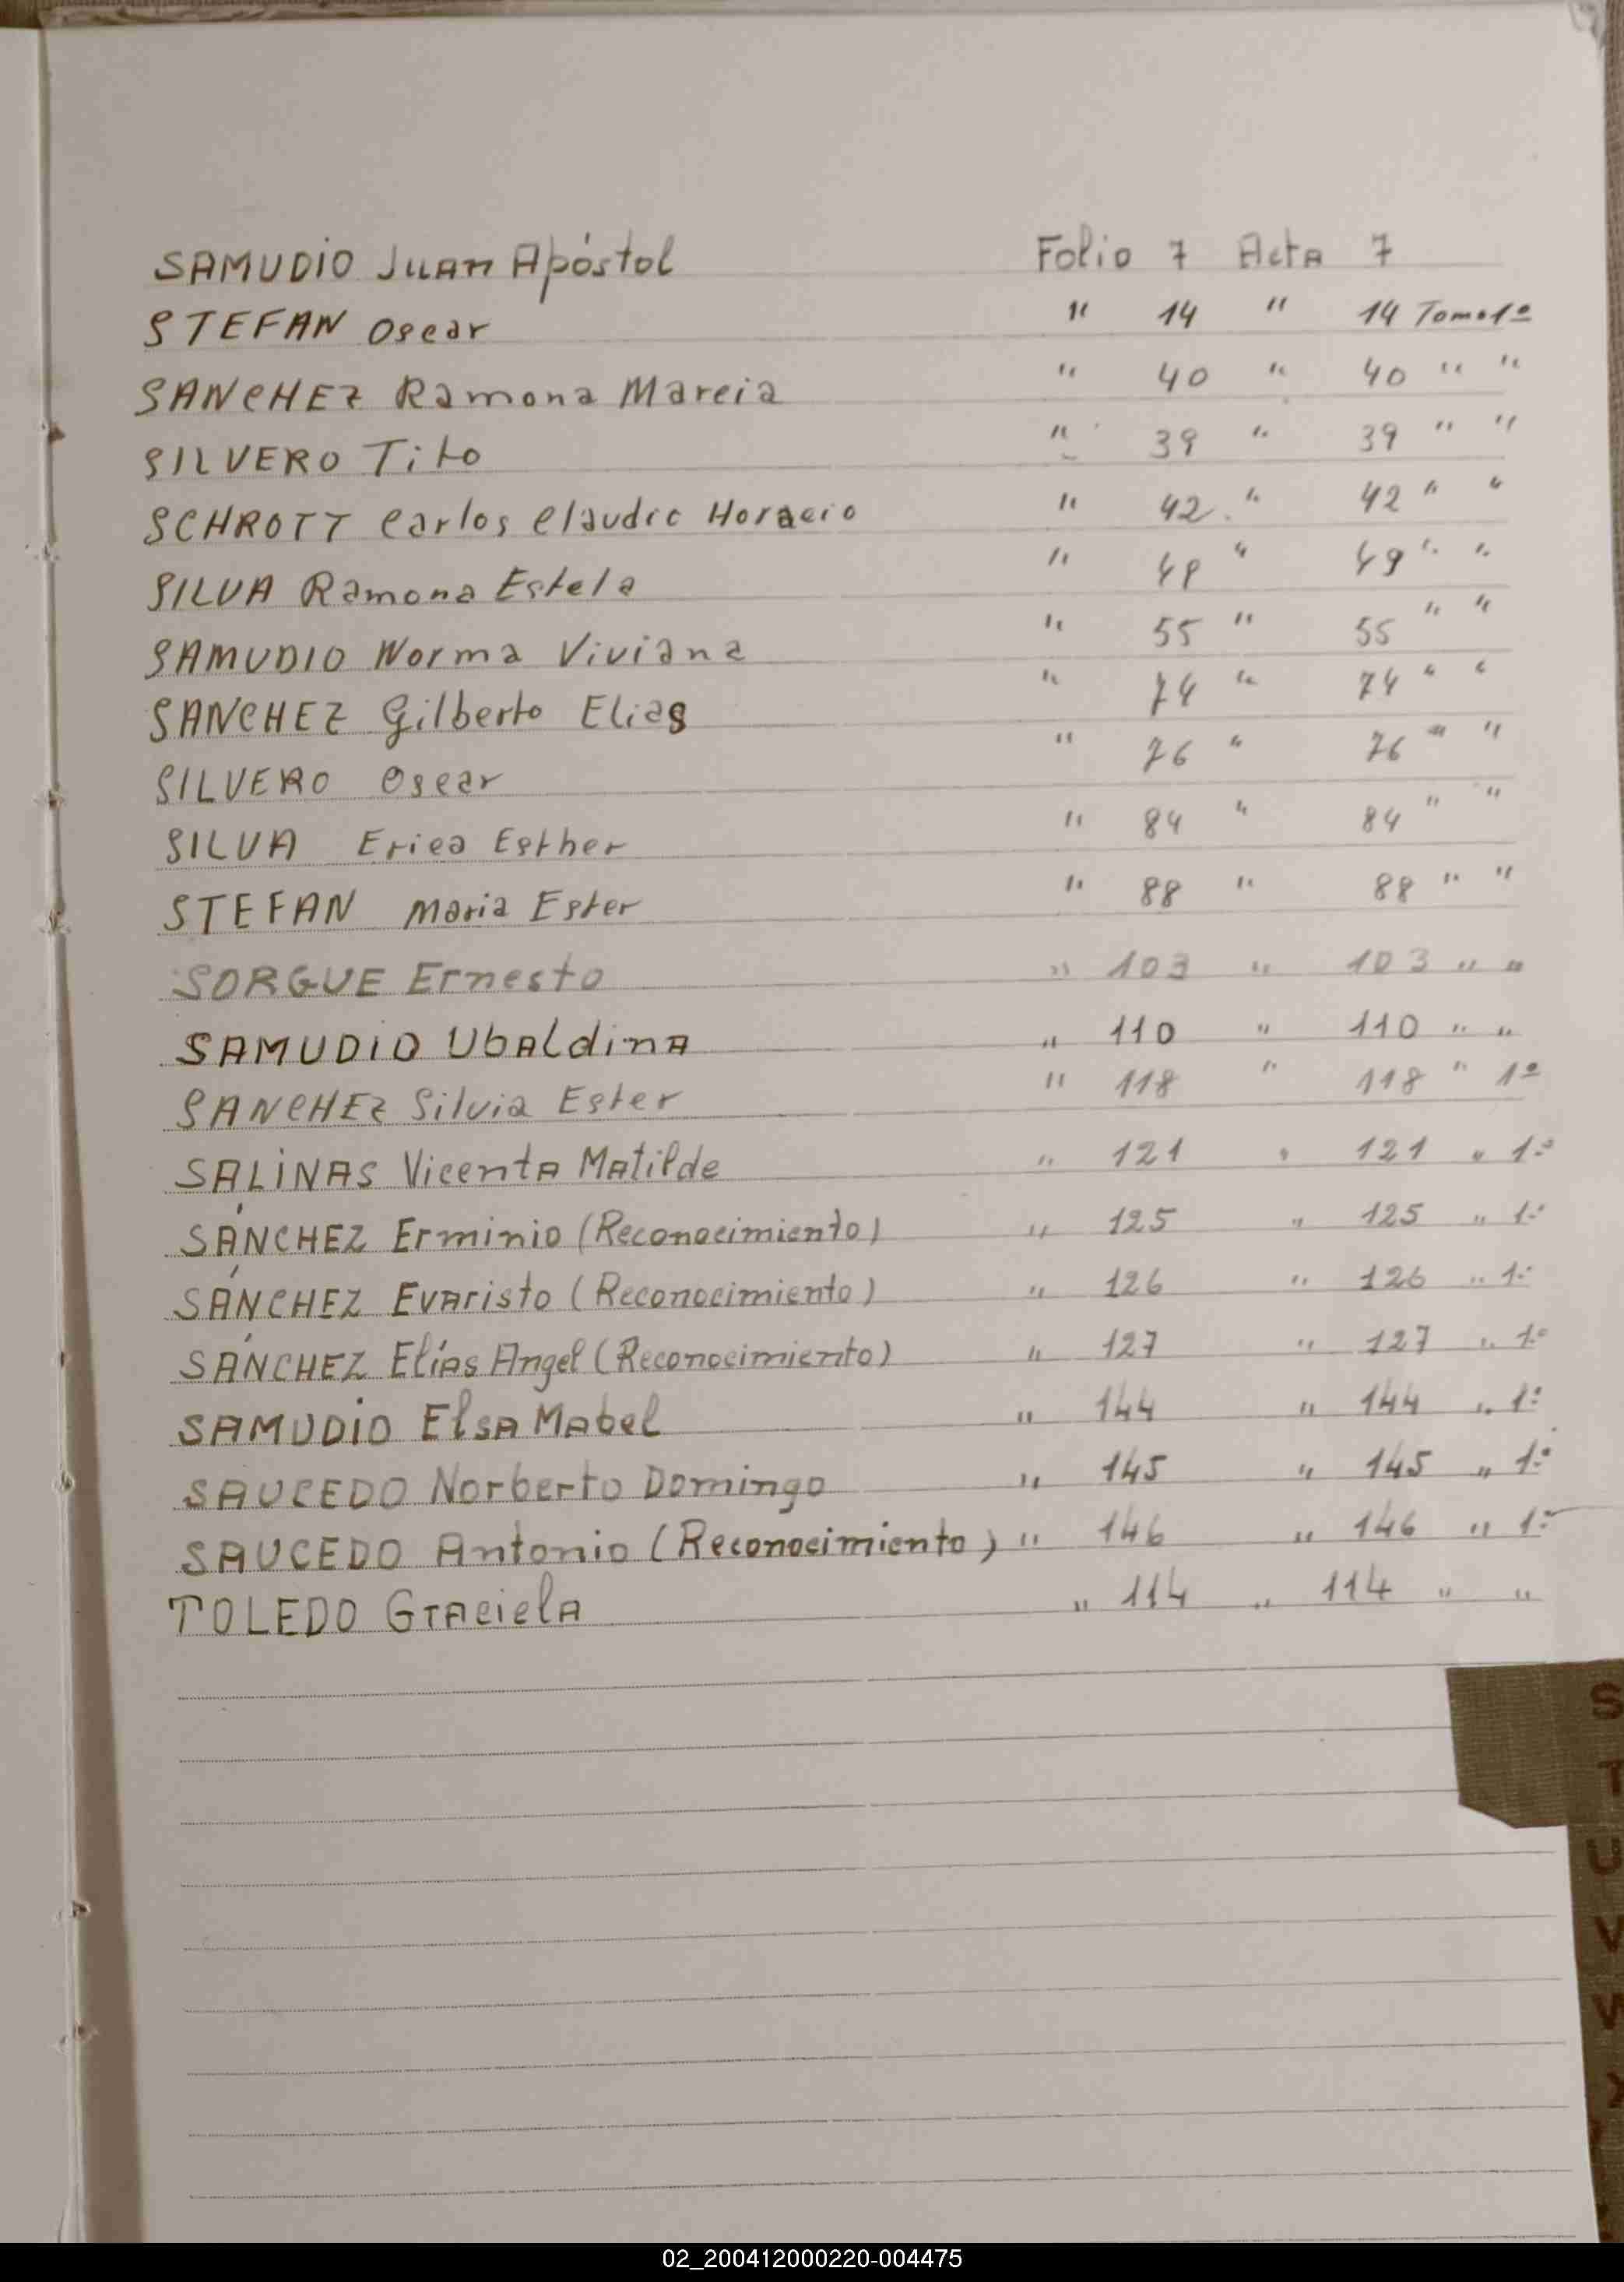 SAMUDIO Juan Apóstol Folio 7 Acta 7
STEFAN Oscar " 14 " 14 Tomo 1º
SANCHEZ Ramona Marcia " 40 " 40 " "
SILVERO Tito " 39 " 39 " "
SCHROTT Carlos Claudio Horacio " 42 " 42 " "
SILVA Ramona Estela " 49 " 49 " "
SAMUDIO Norma Viviana " 55 " 55 " "
SANCHEZ Gilberto Elias " 74 " 74 " "
SILVERO Oscar " 76 " 76 " "
SILVA Erica Esther " 84 " 84 " "
STEFAN Maria Ester " 88 " 88 " "
SORGUE Ernesto " 103 " 103 " "
SAMUDIO Ubaldina " 110 " 110 " "
SANCHEZ Silvia Ester " 118 " 118 " 1º
SALINAS Vicenta Matilde " 121 " 121 " 1º
SÁNCHEZ Erminio (Reconocimiento) " 125 " 125 " 1º
SÁNCHEZ Evaristo (Reconocimiento) " 126 " 126 " 1º
SÁNCHEZ Elías Angel (Reconocimiento) " 127 " 127 " 1º
SAMUDIO Elsa Mabel " 144 " 144 " 1º
SAUCEDO Norberto Domingo " 145 " 145 " 1º
SAUCEDO Antonio (Reconocimiento) " 146 " 146 " 1º
TOLEDO Graciela " 114 " 114 " "
S
T
U
V
02_200412000220-004475